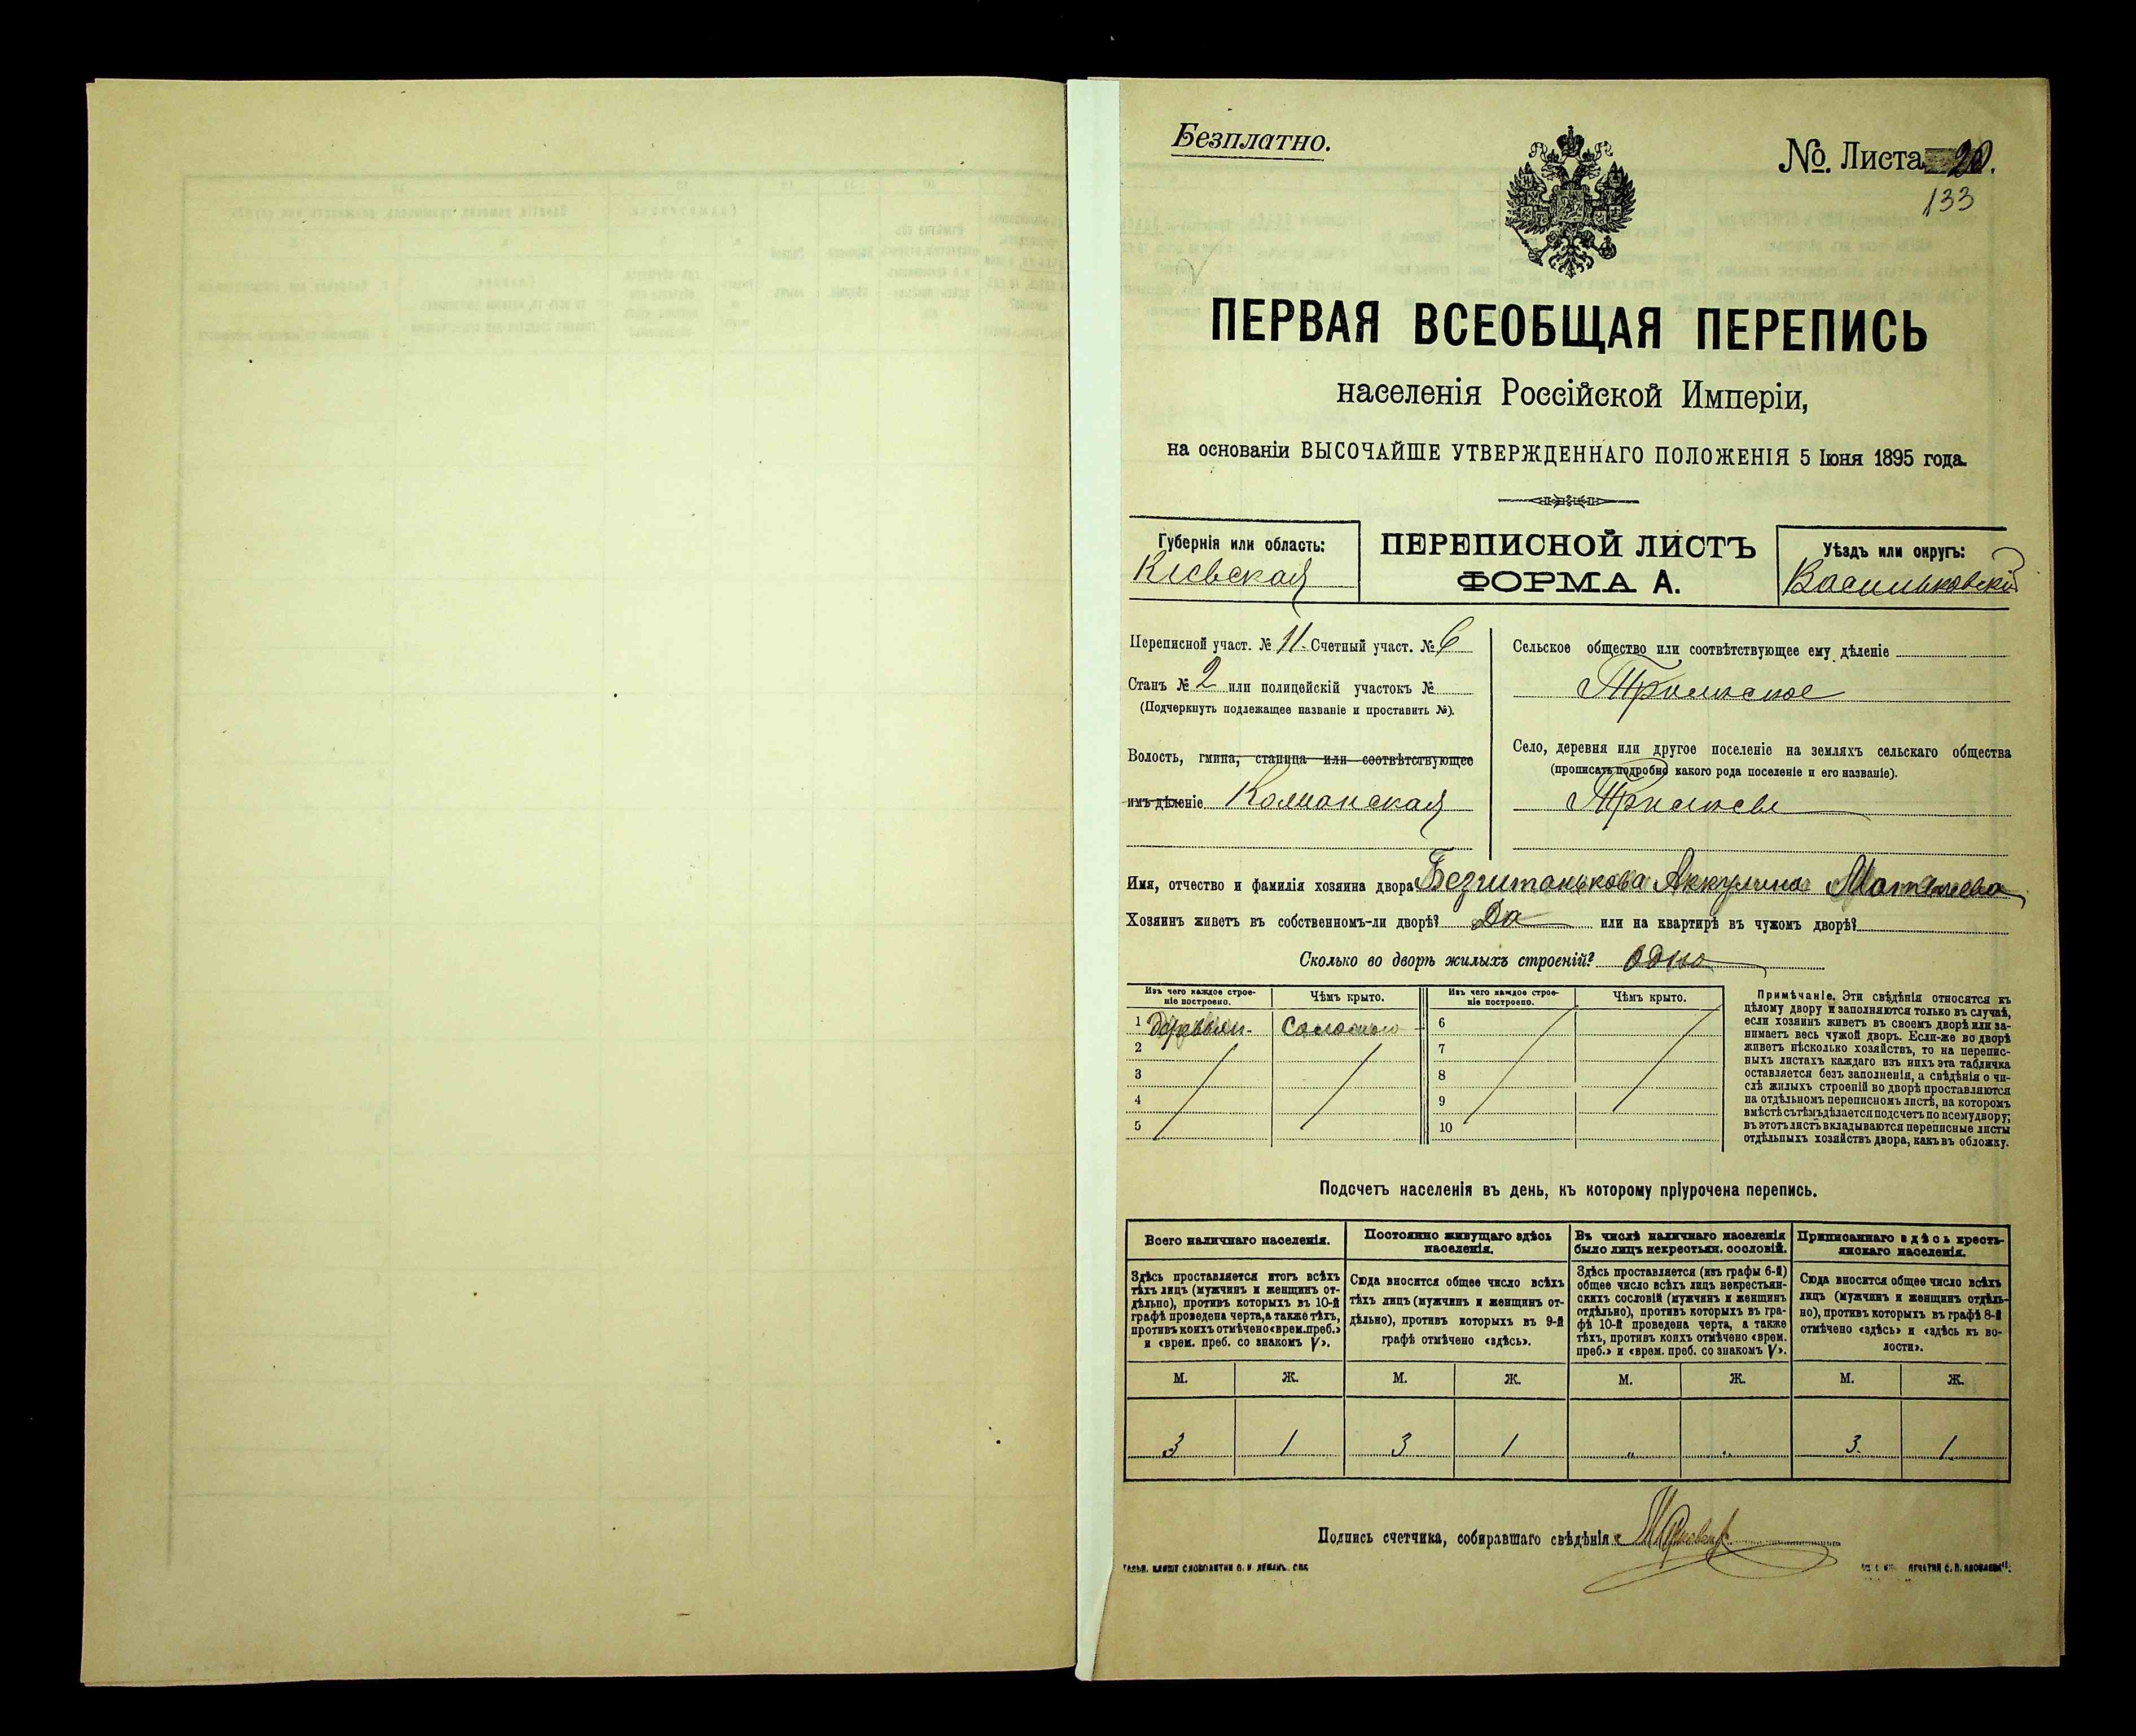 Безплатно.
№. Листа 20.
133
ПЕРВАЯ ВСЕОБЩАЯ ПЕРЕПИСЬ
населенія Россійской Имперіи,
на основаніи ВЫСОЧАЙШЕ УТВЕРЖДЕННАГО ПОЛОЖЕНІЯ 5 Іюня 1895 года.
Губернія или область:
Кіевская
ПЕРЕПИСНОЙ ЛИСТЪ
ФОРМА А.
Уѣздъ или округъ:
Васильковскій
Переписной участ. № 11. Счетный участ. № 6
Станъ № 2 или полицейскій участокъ №
(Подчеркнуть подлежащее названіе и проставить №).
Волость, гмина, станица или соотвѣтствующее
имъ дѣленіе
Сельское общество или соотвѣтствующее ему дѣленіе
Трилиское
Село, деревня или другое поселеніе на земляхъ сельскаго общества
(прописать подробно какого рода поселеніе и его названіе).
Имя, отчество и фамилія хозяина двора Безштанькова Аккулина Матвѣева
Хозяинъ живетъ въ собственномъ-ли дворѣ? Да или на квартирѣ въ чужомъ дворѣ?
Сколько во дворѣ жилыхъ строеній? одно
Изъ чего каждое строе-
ніе построено.
Чѣмъ крыто.
Изъ чего каждое строе-
ніе построено.
Чѣмъ крыто.
1 деревян. соломою 6
2 7
3 8
4 9
5 10
Примѣчаніе. Эти свѣдѣнія относятся къ
цѣлому двору и заполняются только въ случаѣ,
если хозяинъ живетъ въ своемъ дворѣ или за-
нимаетъ весь чужой дворъ. Если-же во дворѣ
живетъ нѣсколько хозяйствъ, то на перепис-
ныхъ листахъ каждаго изъ нихъ эта табличка
оставляется безъ заполненія, а свѣдѣнія о чи-
слѣ жилыхъ строеній во дворѣ проставляются
на отдѣльномъ переписномъ листѣ, на которомъ
вмѣстѣ съ тѣмъ дѣлается подсчетъ по всему двору;
въ этотъ листъ вкладываются переписные листы
отдѣльныхъ хозяйствъ двора, какъ въ обложку.
Подсчетъ населенія въ день, къ которому пріурочена перепись.
Всего наличнаго населенія.
Постоянно живущаго здѣсь
населенія.
Въ числѣ наличнаго населенія
было лицъ некрестьян. сословій.
Приписаннаго здѣсь кресть-
янскаго населенія.
Здѣсь проставляется итогъ всѣхъ
тѣхъ лицъ (мужчинъ и женщинъ от-
дѣльно), противъ которыхъ въ 10-й
графѣ проведена черта, а также тѣхъ,
противъ коихъ отмѣчено «врем. преб.»
и «врем. преб. со знакомъ V».
Сюда вносится общее число всѣхъ
тѣхъ лицъ (мужчинъ и женщинъ от-
дѣльно), противъ которыхъ въ 9-й
графѣ отмѣчено «здѣсь».
Здѣсь проставляется (изъ графы 6-й)
общее число всѣхъ лицъ некрестьян-
скихъ сословій (мужчинъ и женщинъ
отдѣльно), противъ которыхъ въ гра-
фѣ 10-й проведена черта, а также
тѣхъ, противъ коихъ отмѣчено «врем.
преб.» и «врем. преб. со знакомъ V».
Сюда вносится общее число всѣхъ
лицъ (мужчинъ и женщинъ отдѣль-
но), противъ которыхъ въ графѣ 8-й
отмѣчено «здѣсь» и «здѣсь къ во-
лости».
М. Ж. М. Ж. М. Ж. М. Ж.
3 1 3 1 " " 3. 1
Подпись счетчика, собиравшаго свѣдѣнія: